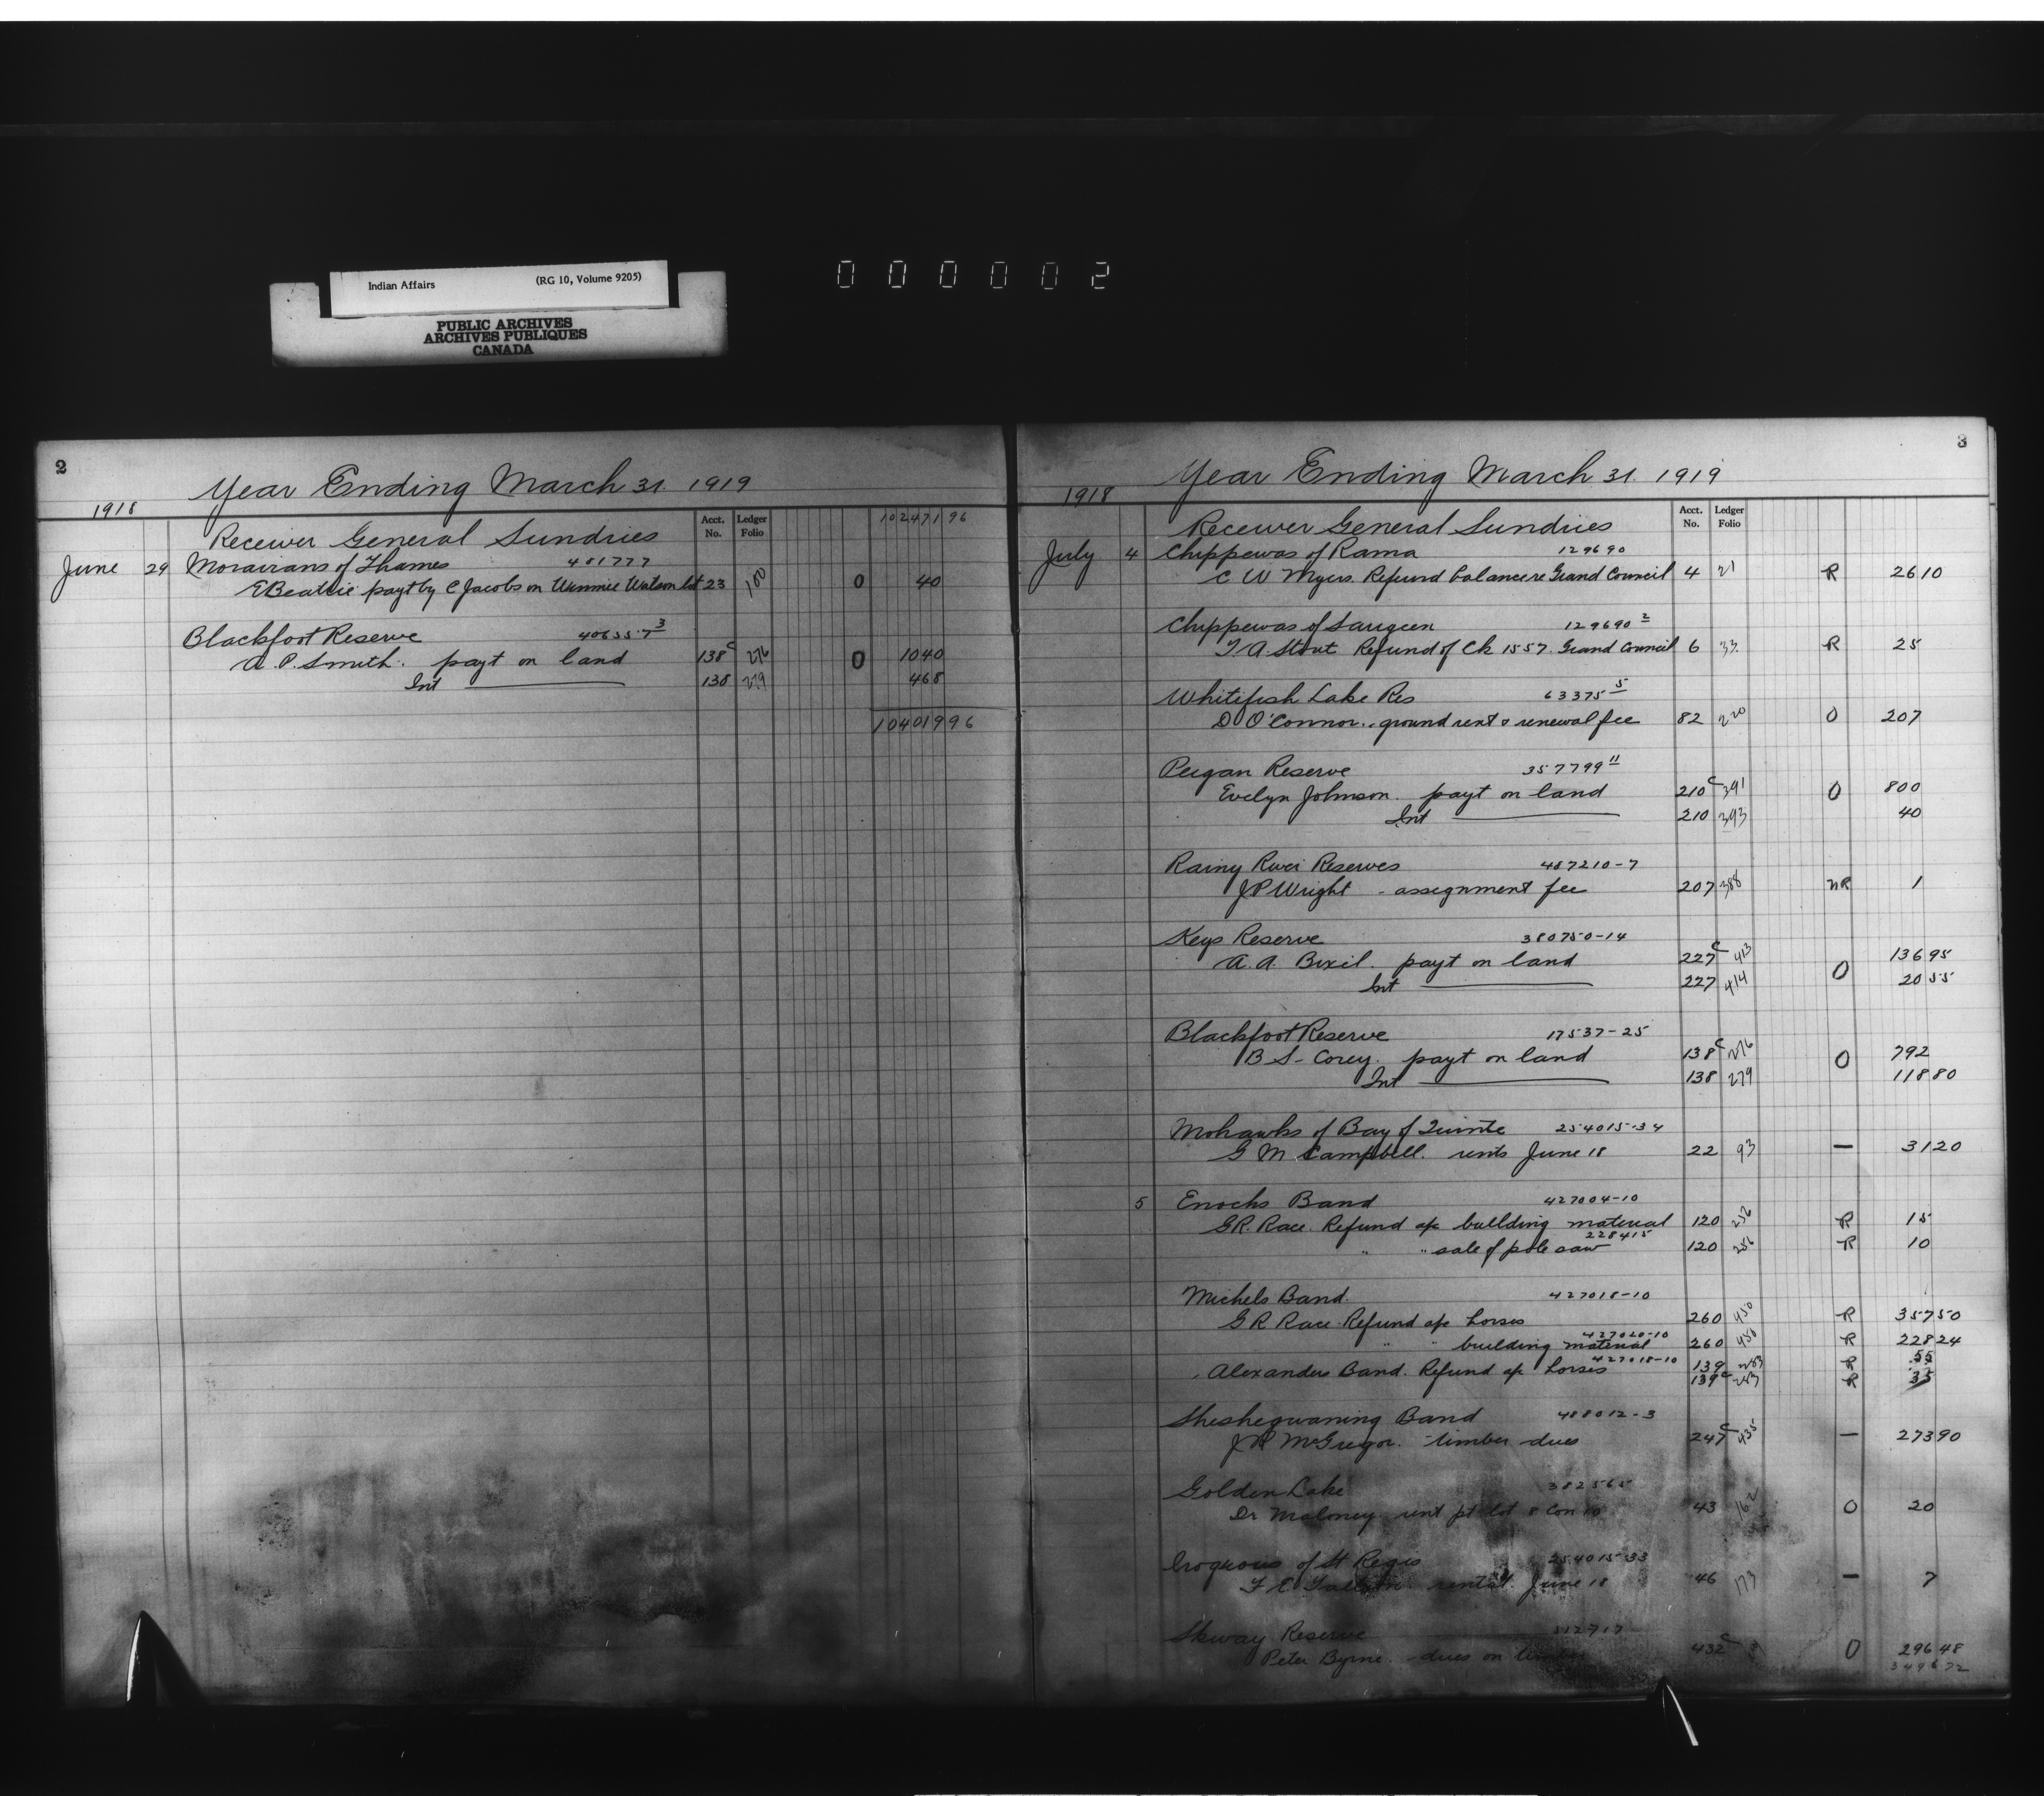 Indian Affairs (RG 10, Volume 9205)
PUBLIC ARCHIVES
ARCHIVES PUBLIQUES
CANADA
000002
2
Year Ending March 31. 1919
1918
Acct. No. Ledger Folio 102471 96
Receiver General Sundries
June 29 Moravians of Thames 481777
E Beattie payt by C Jacobs on Winnie Watson lot 23 100 0 40
Blackfoot Reserve 406357 3
A. P. Smith. payt on land 138c 276 0 1040
Int 138 279 468
104019 96
3
Year Ending March 31. 1919
1918
Acct. No. Ledger Folio
Receiver General Sundries
July 4 Chippewas of Rama 129690
C W Myers. Refund balance re Grand Council 4 21 R 26 10
Chippewas of Saugeen 129690 2
T A Stout Refund of Ck 1557. Grand Council 6 33 R 25
Whitefish Lake Res 63375 5
D O'Connor. ground rent & renewal fee 82 220 0 207
Peigan Reserve 357799 11
Evelyn Johnson. payt on land 210c 391 0 800
Int 210 393 40
Rainy River Reserves 487210-7
J P Wright - assignment fee 207 388 NR 1
Keys Reserve 380750-14
A. A. payt on land 227c 413 0 136 95
Int 227 414 20 55
Blackfoot Reserve 17537-25
B S. Corey. payt on land 138c 276 0 792
Int 138 279 118 80
Mohawks of Bay of Quinte 254015-34
G M Campbell. rents June 18 22 93 — 31 20
5 Enochs Band 427004-10
G R. Race. Refund a/c building material 120 256 R 15
228415
" " sale of pole saw 120 256 R 10
Michels Band. 427018-10
G R Race Refund a/c horses 260 450 R 357 50
427020-10
" " building material 260 450 R 228 24
427018-10
Alexanders Band. Refund a/c horses 139 283 R 55
139c 283 R 35
Sheshegwaning Band 488012-3
J R McGregor. timber dues 247c 435 — 273 90
Golden Lake 382565
Dr Maloney rent pt lot 8 Con 10 43 162 0 20
Iroquois of St Regis 254015-33
F E rental June 18 46 173 — 7
Skway Reserve 512717
Peter Byrne. - dues on timber 432c 0 296 48
3496 72